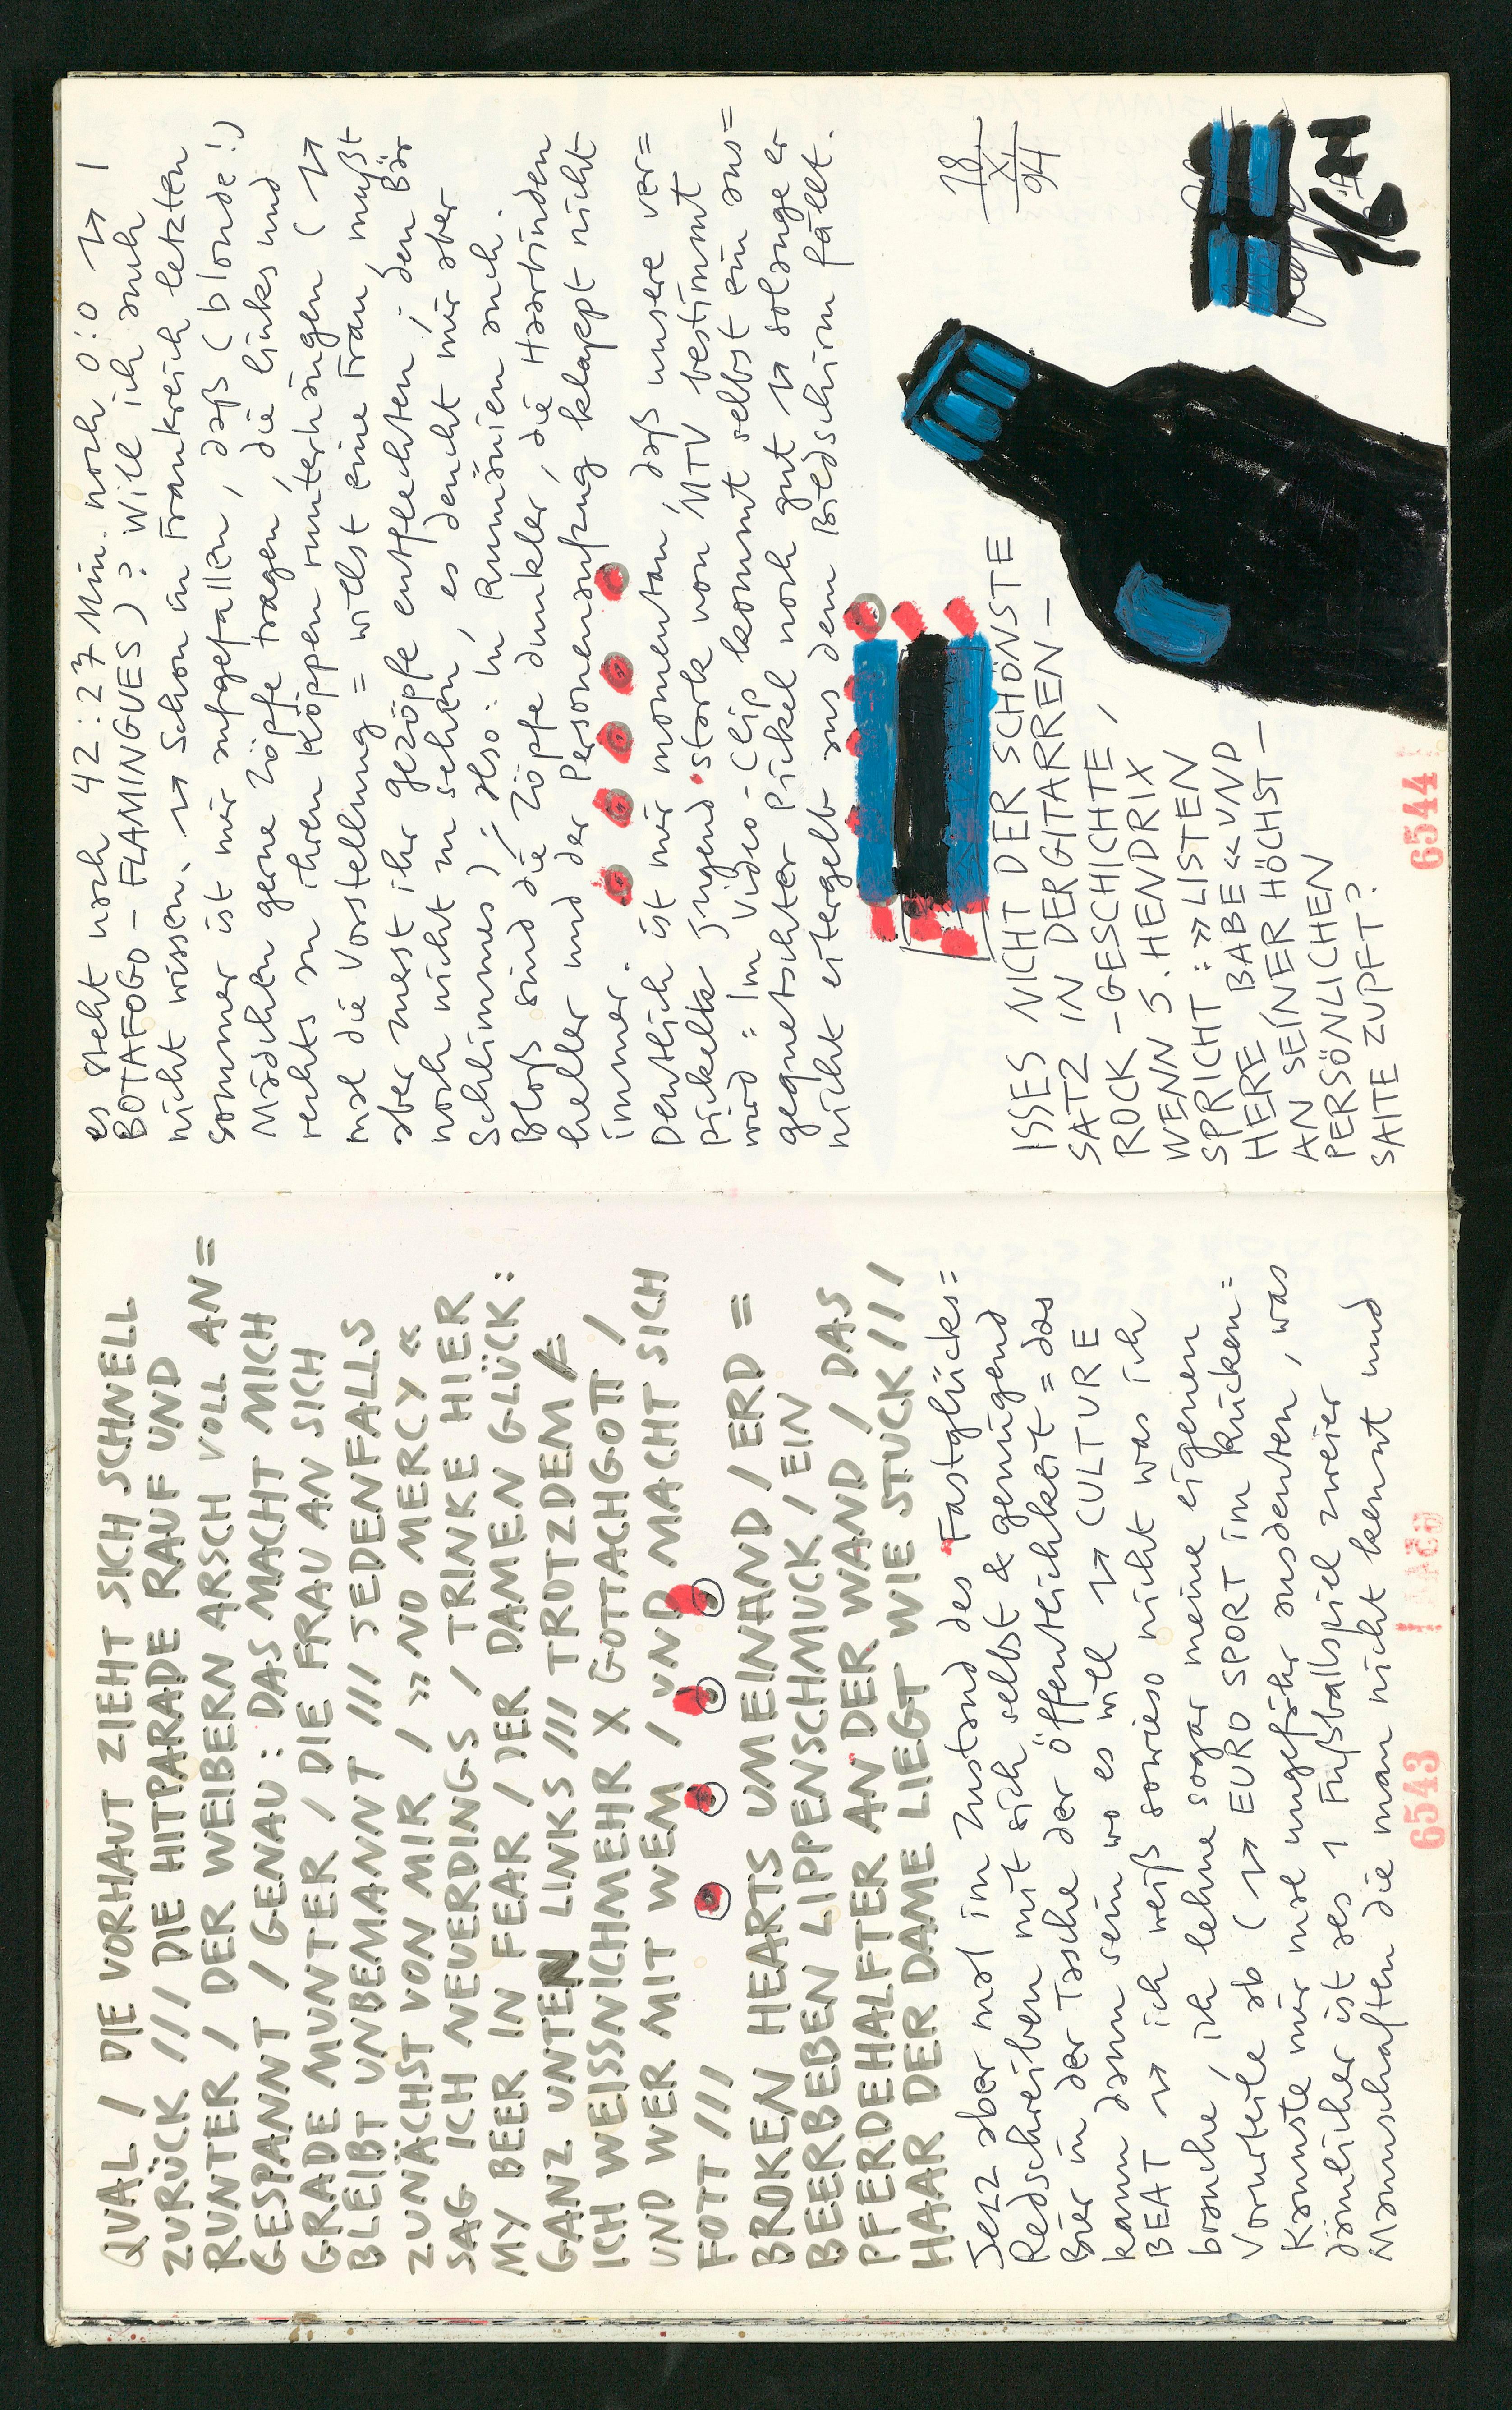 QUAL / DIE VORHAUT ZIEHT SICH SCHNELL
ZURÜCK /// DIE HITPARADE RAUF UND
RUNTER / DER WEIBERN ARSCH VOLL AN=
GESPANNT / GENAU: DAS MACHT MICH
GRADE MUNTER / DIE FRAU AN SICH
BLEIBT UNBEMANNT /// JEDENFALLS
ZUNÄCHST VON MIR / »NO MERCY«
SAG ICH NEUERDINGS / TRINKE HIER
MY BEER IN FEAR / DER DAMEN GLÜCK:
GANZ UNTEN LINKS /// TROTZDEM /
ICH WEISSNICHMEHR X GOTTACHGOTT /
UND WER MIT WEM / UND MACHT SICH
FOTT ///
BROKEN HEARTS UMEINAND / ERD =
BEERBEBEN LIPPENSCHMUCK / EIN
PFERDEHALFTER AN DER WAND / DAS
HAAR DER DAME LIEGT WIE STUCK ///
Jezz aber mal im Zustand des Fastglücks=
Redschreiben mit sich selbst & genügend
Bier in der Tasche der Öffentlichkeit = das
kann dann sein wo es will CULTURE
BEAT ich weiß sowieso nicht was ich
brauche, ich lehne sogar meine eigenen
Vorurteile ab ( EURO SPORT im Rücken:
Könnste mir mal ungefähr ausdeuten, was
dämlicher ist als 1 Fußballspiel zweier
Mannschaften die man nicht kennt und
6543
es steht nach 42:27 Min. noch 0:0
BOTAFOGO - FLAMINGUES)? Will ich auch
nicht wissen. Schon in Frankreich letzten
Sommer ist mir aufgefallen, daß (blonde!)
Mädchen gerne Zöpfe tragen, die links und
rechts an ihren Köppen runterhängen (
mal die Vorstellung = willst eine Frau, mußt
aber erst ihr gezöpfe entflechten; den Bär
noch nicht zu sehen, es deucht mir aber
Schlimmes); also: In Rumänien auch.
Bloß sind die Zöpfe dunkler, die Haarbinden
heller und der Personenaufzug klappt nicht
immer.
Deutlich ist mir momentan, daß unsere ver=
pickelte Jugend stark von MTV bestimmt
wird: Im Video-Clip kommt selbst ein aus=
gequetschter Pickel noch gut solange er
nicht eitergelb aus dem Bildschirm fällt.
18
X
94
ISSES NICHT DER SCHÖNSTE
SATZ IN DER GITARREN-
ROCK-GESCHICHTE,
WENN J. HENDRIX
SPRICHT: »LISTEN
HERE BABE« UND
AN SEINER HÖCHST-
PERSÖNLICHEN
SAITE ZUPFT?
6544
16H